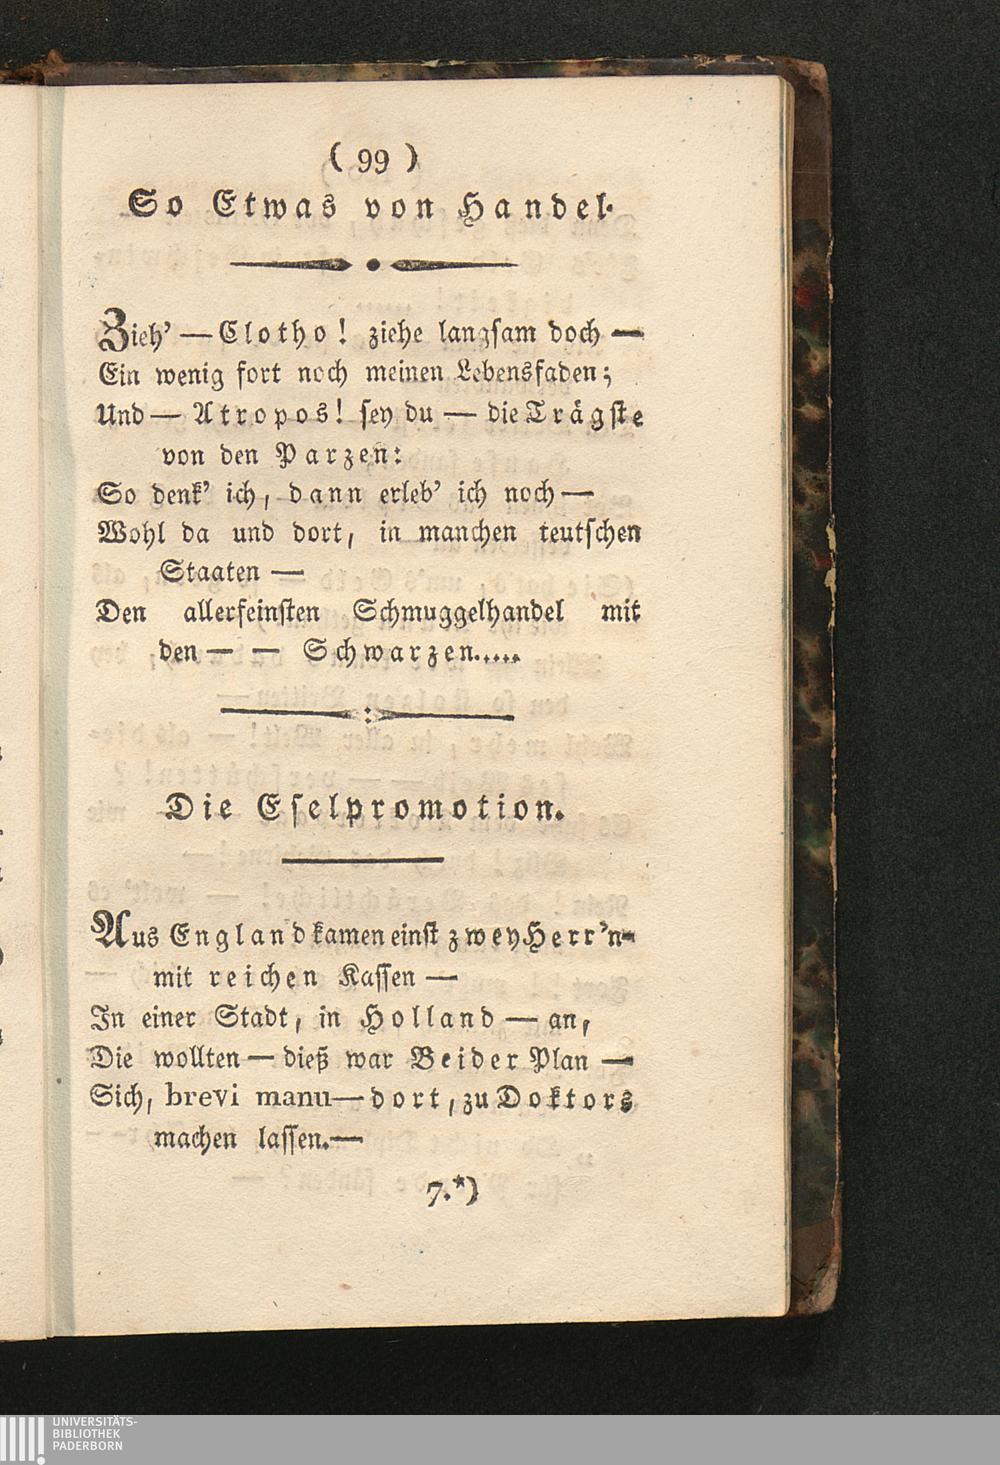 ( 99 )
So Etwas von Handel.
Zieh’ — Clotho! ziehe langsam doch —
Ein wenig fort noch meinen Lebensfaden;
Und — Atropos! sey du — die Trägste
von den Parzen:
So denk’ ich, dann erleb’ ich noch —
Wohl da und dort, in manchen teutschen
Staaten —
Den allerfeinsten Schmuggelhandel mit
den — — Schwarzen.....
Die Eselpromotion.
Aus England kamen einst zwey Herr’n-
mit reichen Kassen —
In einer Stadt, in Holland — an,
Die wollten — dieß war Beider Plan —
Sich, brevi manu — dort, zu Doktors
machen lassen. —
7.*)
UNIVERSITÄTS-
BIBLIOTHEK
PADERBORN